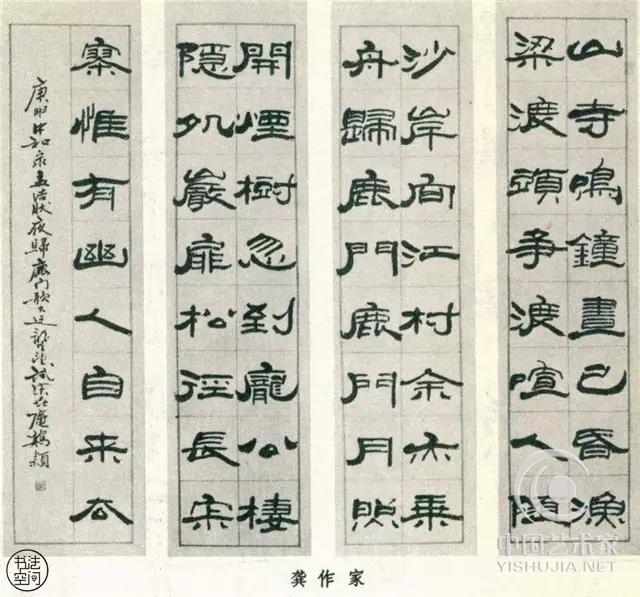 山寺鳴鐘晝已昏漁
梁渡頭争渡喧人隨
沙岸向江村余亦乘
舟歸鹿門鹿門月照
開煙樹忽到龐公棲
隱処巖扉松徑長寂
寥惟有幽人自来去
庚申中和录孟浩然夜歸鹿門歌
龚作家
书法空间
中国艺术家
YISHUJIA.NET